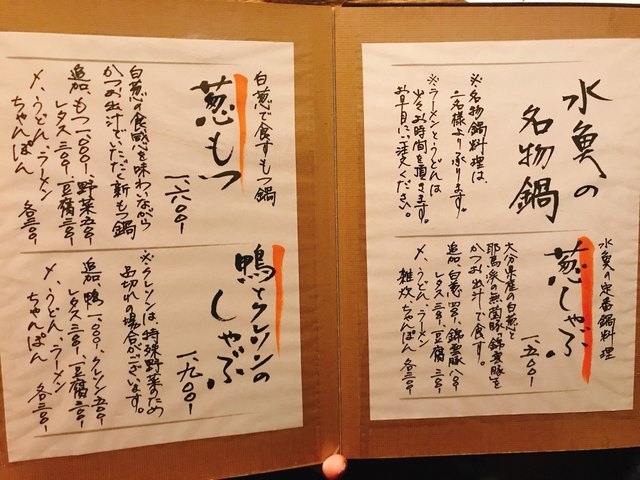 水魚の
名物鍋
※名物鍋料理は、
二名様より承ります。
※ラーメンとうどんは
少々お時間を頂きます。
お早目にご注文ください。
水魚の定番鍋料理
葱しゃぶ
一、五〇〇-
大分県産の白葱と
耶馬渓の無菌豚、錦雲豚を
かつお出汁で食す。
追加 白葱 四〇〇-、錦雲豚 八〇〇-
レタス 三〇〇-、豆腐 三〇〇-
〆、うどん、ラーメン
雑炊、ちゃんぽん 各三〇〇-
白葱で食すもつ鍋
葱もつ
一、六〇〇-
白葱の食感を味わいながら
かつお出汁でいただく新もつ鍋
追加、もつ 一、〇〇〇-、野菜 五〇〇-
レタス 三〇〇-、豆腐 三〇〇-
〆、うどん、ラーメン
ちゃんぽん 各三〇〇-
鴨とクレソンの
しゃぶしゃぶ
一、九〇〇-
※クレソンは、特殊野菜のため
品切れの場合がございます。
追加、鴨 一、〇〇〇-、クレソン 五〇〇-
レタス 三〇〇-、豆腐 三〇〇-
〆、うどん、ラーメン
ちゃんぽん 各三〇〇-